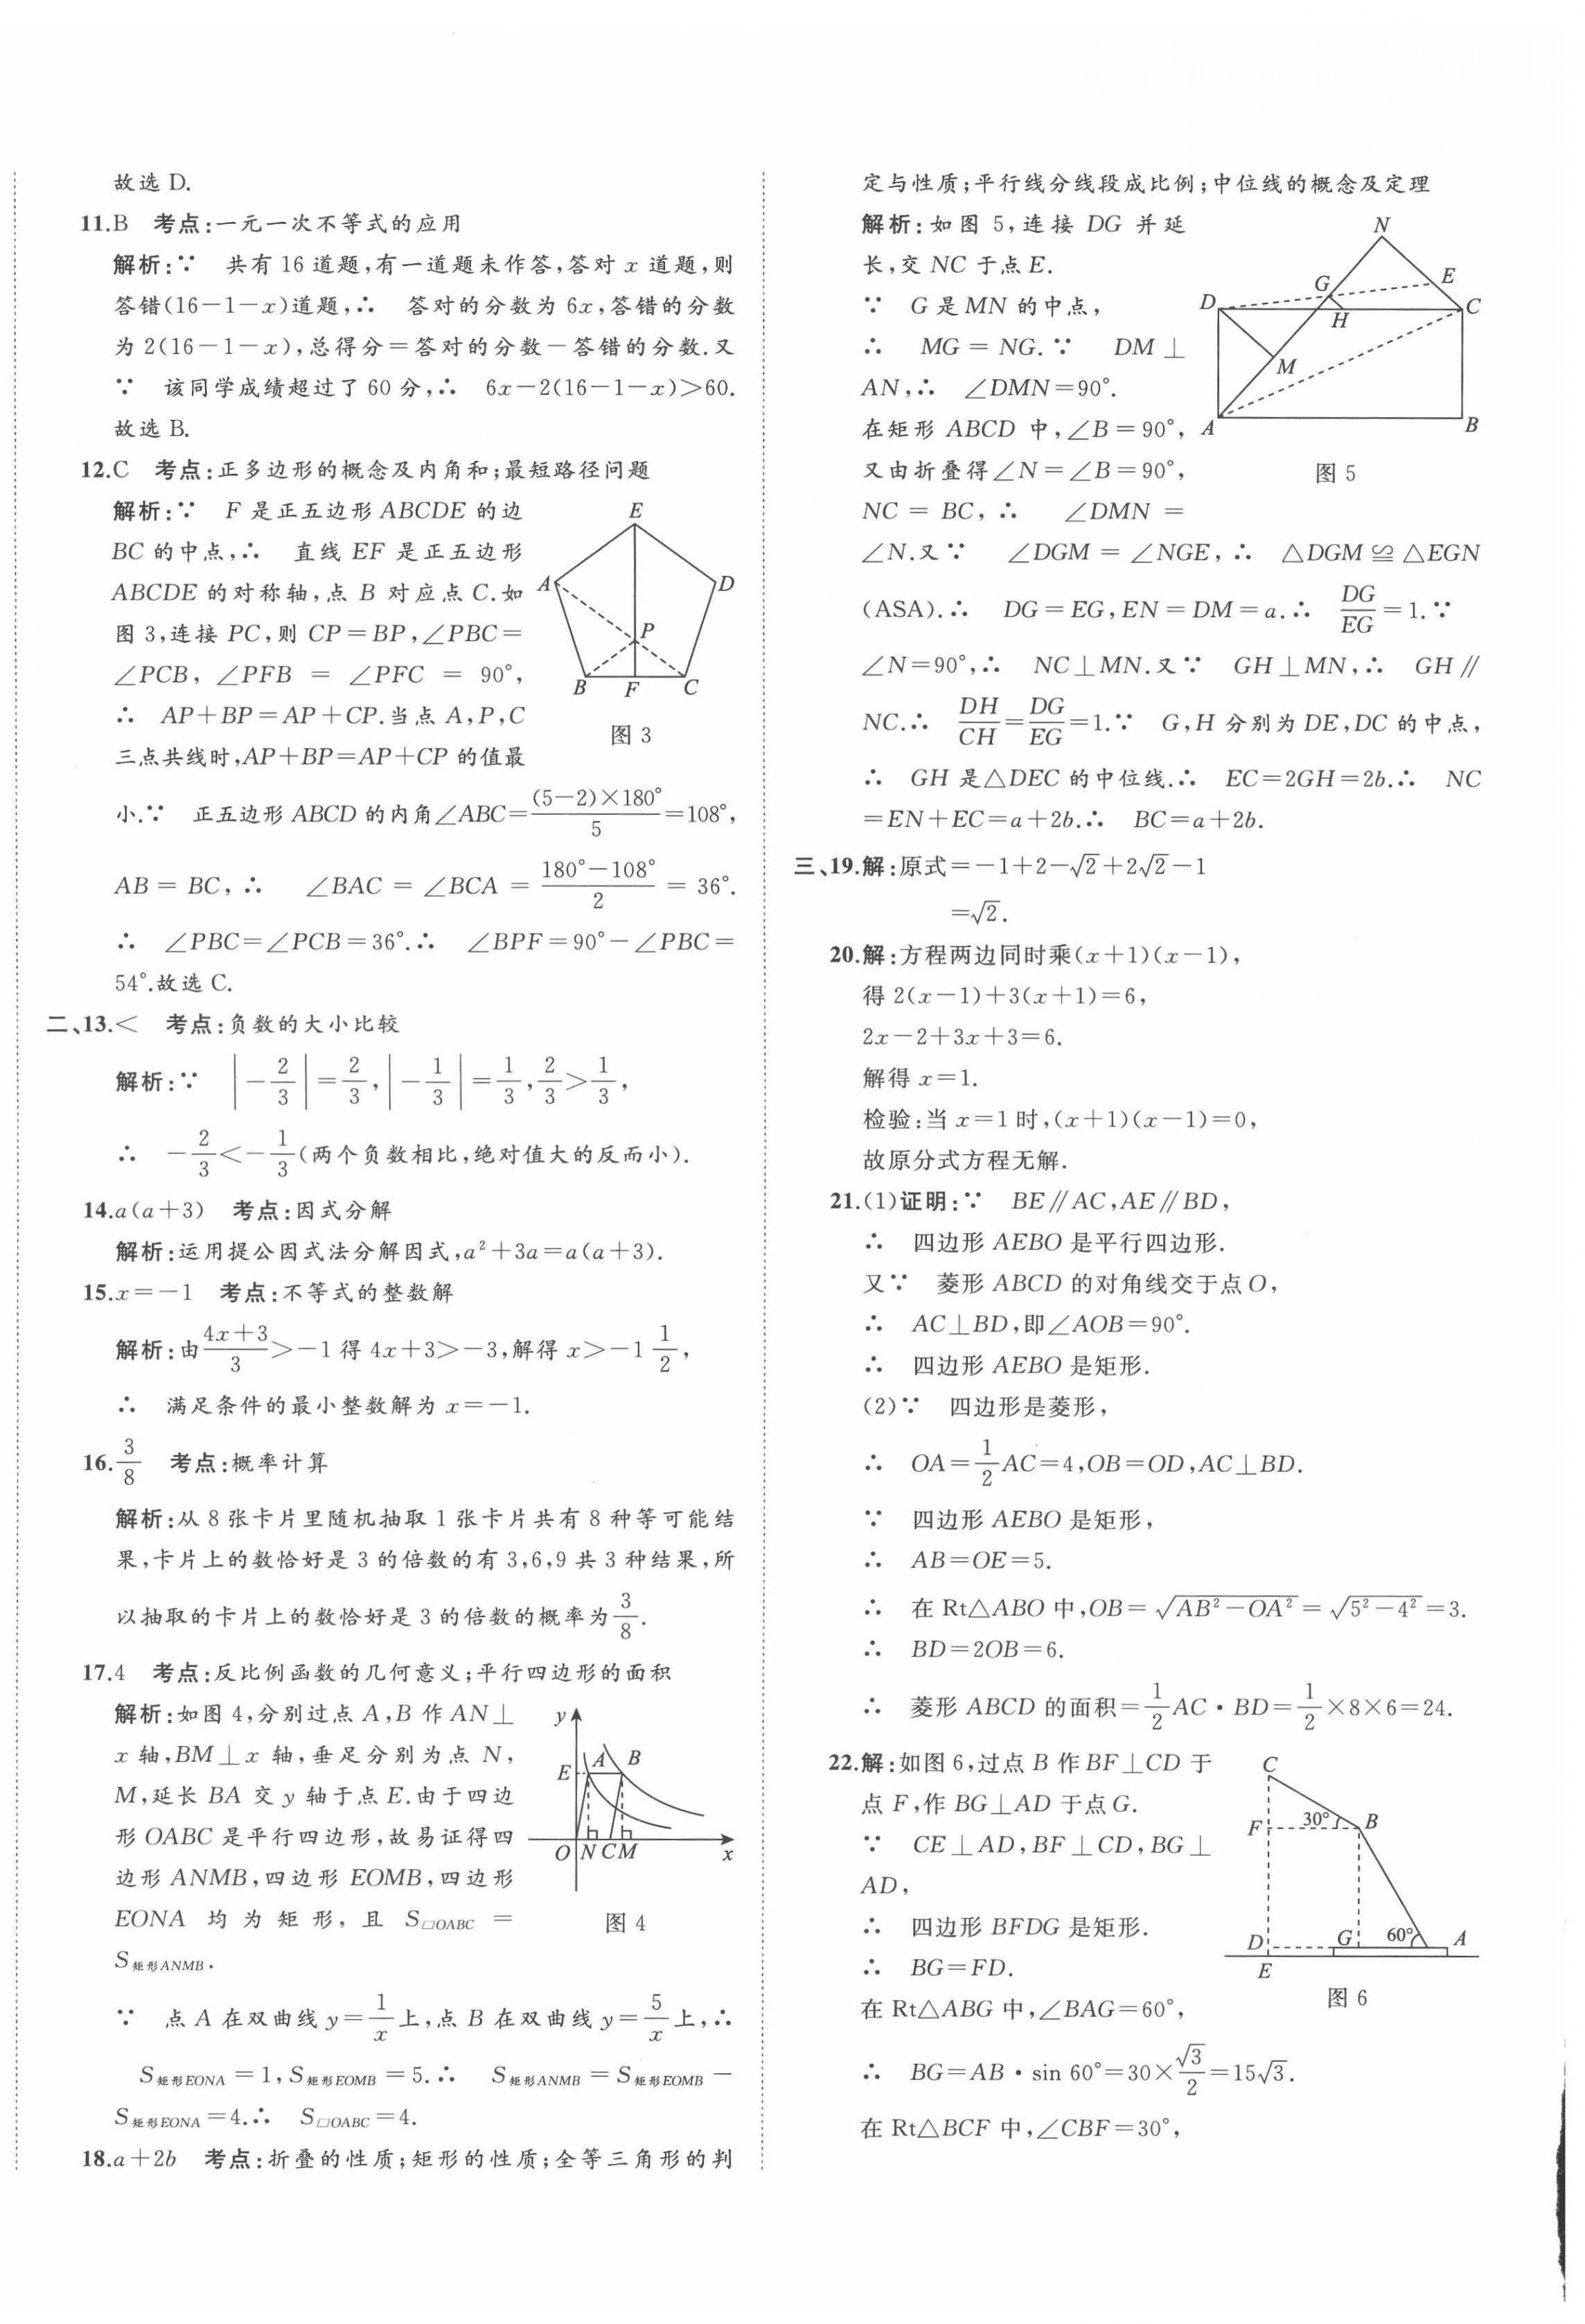 故选 D.
11.B 考点:一元一次不等式的应用
解析:∵ 共有 16 道题,有一道题未作答,答对 x 道题,则
答错(16-1-x)道题,∴ 答对的分数为 6x,答错的分数
为 2(16-1-x),总得分=答对的分数-答错的分数.又
∵ 该同学成绩超过了 60 分,∴ 6x-2(16-1-x)>60.
故选 B.
12.C 考点:正多边形的概念及内角和;最短路径问题
解析:∵ F 是正五边形 ABCDE 的边
BC 的中点,∴ 直线 EF 是正五边形
ABCDE 的对称轴,点 B 对应点 C.如
图 3,连接 PC,则 CP=BP,∠PBC=
∠PCB, ∠PFB = ∠PFC = 90°,
∴ AP+BP=AP+CP.当点 A,P,C
三点共线时,AP+BP=AP+CP 的值最
E
A
D
P
B
F
C
图 3
小.∵ 正五边形 ABCD 的内角∠ABC=(5-2)×180°/5=108°,
AB = BC, ∴ ∠BAC = ∠BCA = (180°-108°)/2 = 36°.
∴ ∠PBC=∠PCB=36°.∴ ∠BPF=90°-∠PBC=
54°.故选 C.
二、13.< 考点:负数的大小比较
解析:∵ |-2/3|=2/3,|-1/3|=1/3,2/3>1/3,
∴ -2/3<-1/3(两个负数相比,绝对值大的反而小).
14.a(a+3) 考点:因式分解
解析:运用提公因式法分解因式,a²+3a=a(a+3).
15.x=-1 考点:不等式的整数解
解析:由(4x+3)/3>-1 得 4x+3>-3,解得 x>-1 1/2,
∴ 满足条件的最小整数解为 x=-1.
16.3/8 考点:概率计算
解析:从 8 张卡片里随机抽取 1 张卡片共有 8 种等可能结
果,卡片上的数恰好是 3 的倍数的有 3,6,9 共 3 种结果,所
以抽取的卡片上的数恰好是 3 的倍数的概率为3/8.
17.4 考点:反比例函数的几何意义;平行四边形的面积
解析:如图 4,分别过点 A,B 作 AN⊥
x 轴,BM⊥x 轴,垂足分别为点 N,
M,延长 BA 交 y 轴于点 E.由于四边
形 OABC 是平行四边形,故易证得四
边形 ANMB,四边形 EOMB,四边形
EONA 均为矩形,且 S▱OABC =
S矩形ANMB.
y
E
A
B
O
N
C
M
x
图 4
∵ 点 A 在双曲线 y=1/x上,点 B 在双曲线 y=5/x上,∴
S矩形EONA = 1, S矩形EOMB = 5. ∴ S矩形ANMB = S矩形EOMB -
S矩形EONA=4.∴ S▱OABC=4.
18.a+2b 考点:折叠的性质;矩形的性质;全等三角形的判
定与性质;平行线分线段成比例;中位线的概念及定理
解析:如图 5,连接 DG 并延
长,交 NC 于点 E.
∵ G 是 MN 的中点,
∴ MG = NG. ∵ DM ⊥
AN,∴ ∠DMN=90°.
在矩形 ABCD 中,∠B=90°,
又由折叠得∠N=∠B=90°,
NC = BC, ∴ ∠DMN =
N
G
E
D
C
H
M
A
B
图 5
∠N.又∵ ∠DGM = ∠NGE, ∴ △DGM≌△EGN
(ASA).∴ DG=EG,EN=DM=a.∴ DG/EG=1.∵
∠N=90°,∴ NC⊥MN.又∵ GH⊥MN,∴ GH∥
NC.∴ DH/CH=DG/EG=1.∵ G,H 分别为 DE,DC 的中点,
∴ GH 是△DEC 的中位线.∴ EC=2GH=2b.∴ NC
=EN+EC=a+2b.∴ BC=a+2b.
三、19.解:原式=-1+2-√2+2√2-1
=√2.
20.解:方程两边同时乘(x+1)(x-1),
得 2(x-1)+3(x+1)=6,
2x-2+3x+3=6.
解得 x=1.
检验:当 x=1 时,(x+1)(x-1)=0,
故原分式方程无解.
21.(1)证明:∵ BE∥AC,AE∥BD,
∴ 四边形 AEBO 是平行四边形.
又∵ 菱形 ABCD 的对角线交于点 O,
∴ AC⊥BD,即∠AOB=90°.
∴ 四边形 AEBO 是矩形.
(2)∵ 四边形是菱形,
∴ OA=1/2AC=4,OB=OD,AC⊥BD.
∵ 四边形 AEBO 是矩形,
∴ AB=OE=5.
∴ 在 Rt△ABO 中,OB=√(AB²-OA²)=√(5²-4²)=3.
∴ BD=2OB=6.
∴ 菱形 ABCD 的面积=1/2AC·BD=1/2×8×6=24.
22.解:如图 6,过点 B 作 BF⊥CD 于
点 F,作 BG⊥AD 于点 G.
∵ CE⊥AD,BF⊥CD,BG⊥
AD,
∴ 四边形 BFDG 是矩形.
∴ BG=FD.
在 Rt△ABG 中,∠BAG=60°,
C
F
30°
B
D
G
60°
A
E
图 6
∴ BG=AB·sin 60°=30×√3/2=15√3.
在 Rt△BCF 中,∠CBF=30°,